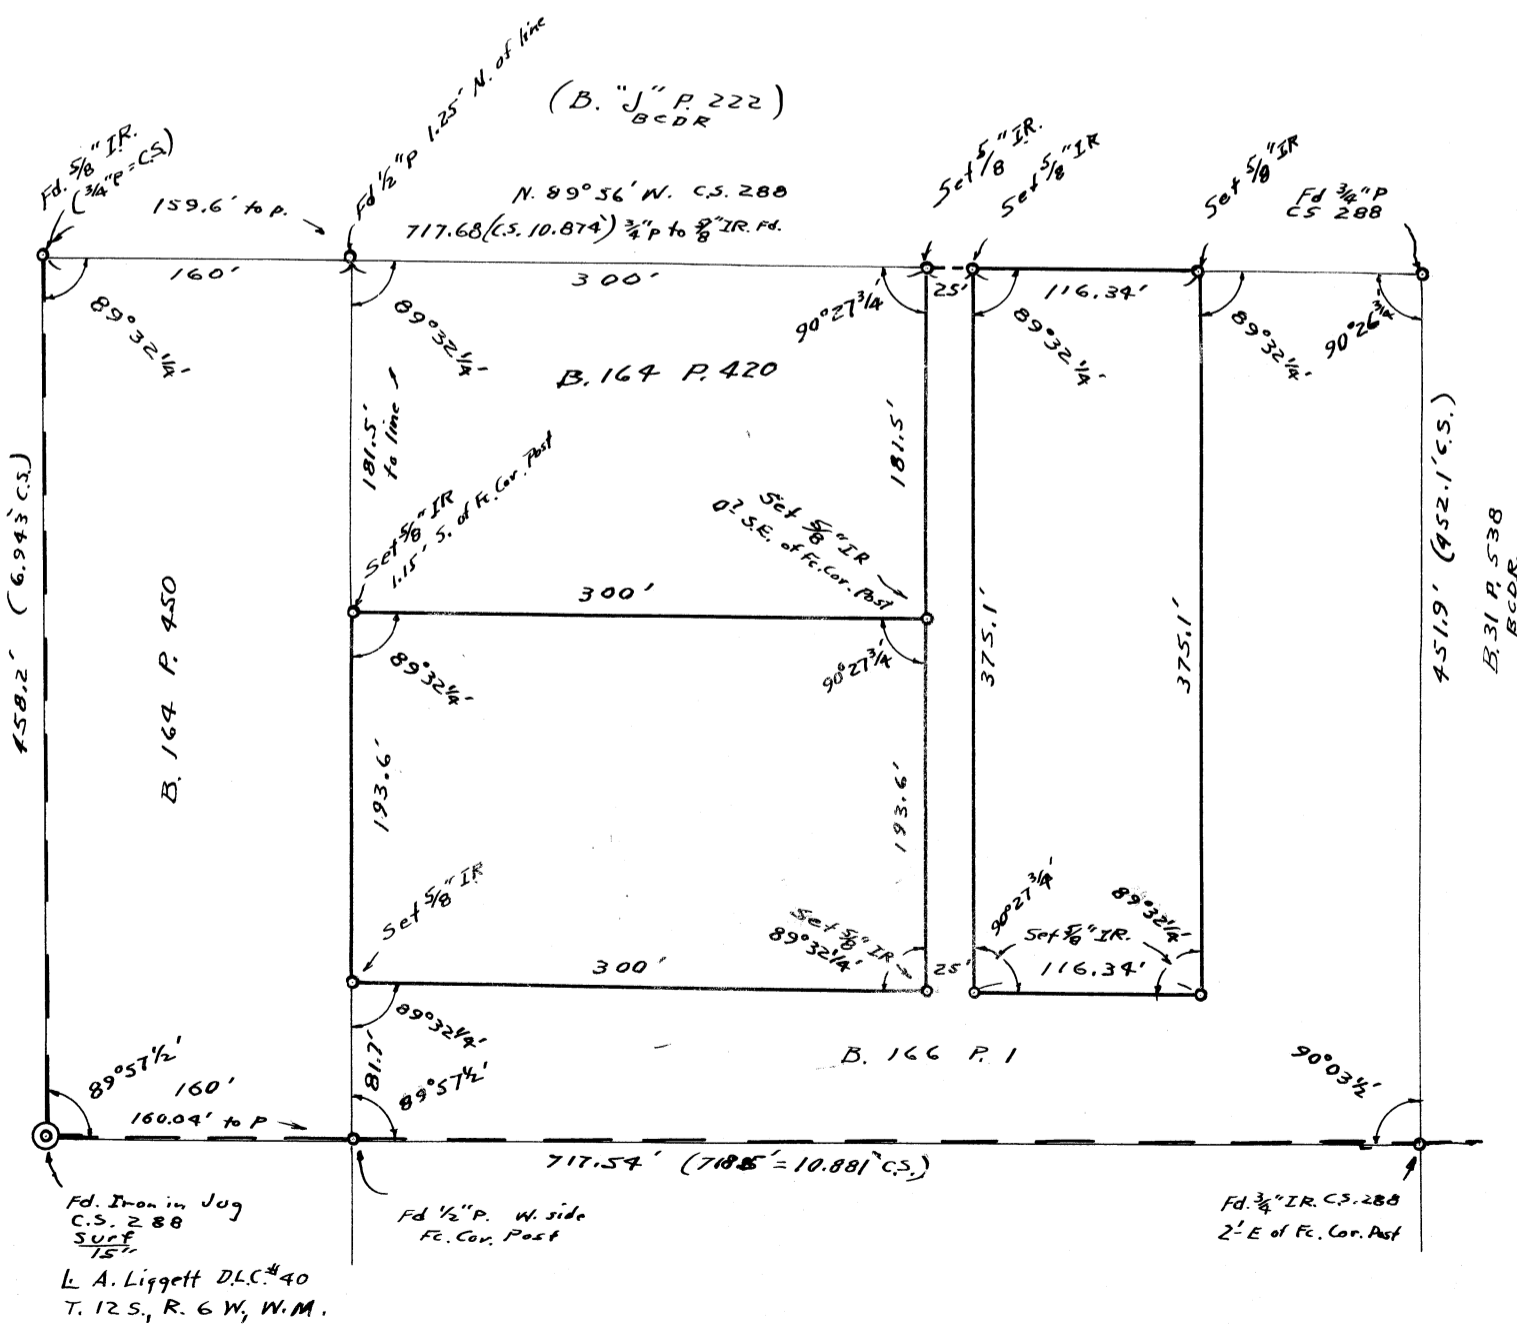 (B. "J" P. 222)
BCDR
Fd. 5/8" I.R.
(3/4" P = C.S.)
159.6' to P.
Fd 1/2" P 1.25' N. of line
N. 89°56' W. C.S. 288
717.68 (C.S. 10.874) 3/4" P to 5/8" I.R. Fd.
Set 5/8" I.R.
Set 5/8" IR
Set 5/8" IR
Fd 3/4" P
CS 288
160'
300'
25'
116.34'
89°32 1/4'
89°32 1/4'
90°27 3/4'
89°32 1/4'
89°32 1/4'
90°26 3/4'
B. 164 P. 420
181.5'
to line
181.5'
458.2' (6.943 C.S.)
B. 164 P. 450
Set 5/8" IR
1.15' S. of Fc. Cor. Post
Set 5/8" IR
S.E. of Fc. Cor. Post
300'
89°32 1/4'
90°27 3/4'
375.1'
375.1'
451.9' (452.1' C.S.)
B. 31 P. 538
BCDR.
193.6'
193.6'
Set 5/8" IR
Set 5/8" IR
89°32 1/4'
90°27 3/4'
89°32 1/4'
Set 5/8" IR.
300'
25'
116.34'
89°32 1/4'
81.7'
B. 166 P. 1
89°57 1/2'
89°57 1/2'
90°03 1/2'
160'
160.04' to P
717.54' (718.15' = 10.881 C.S.)
Fd. Iron in Jug
C.S. 288
Surf
15"
Fd 1/2" P. W. side
Fc. Cor. Post
Fd. 3/4" IR. C.S. 288
2' E of Fc. Cor. Post
L. A. Liggett D.L.C. #40
T. 12 S., R. 6 W., W.M.